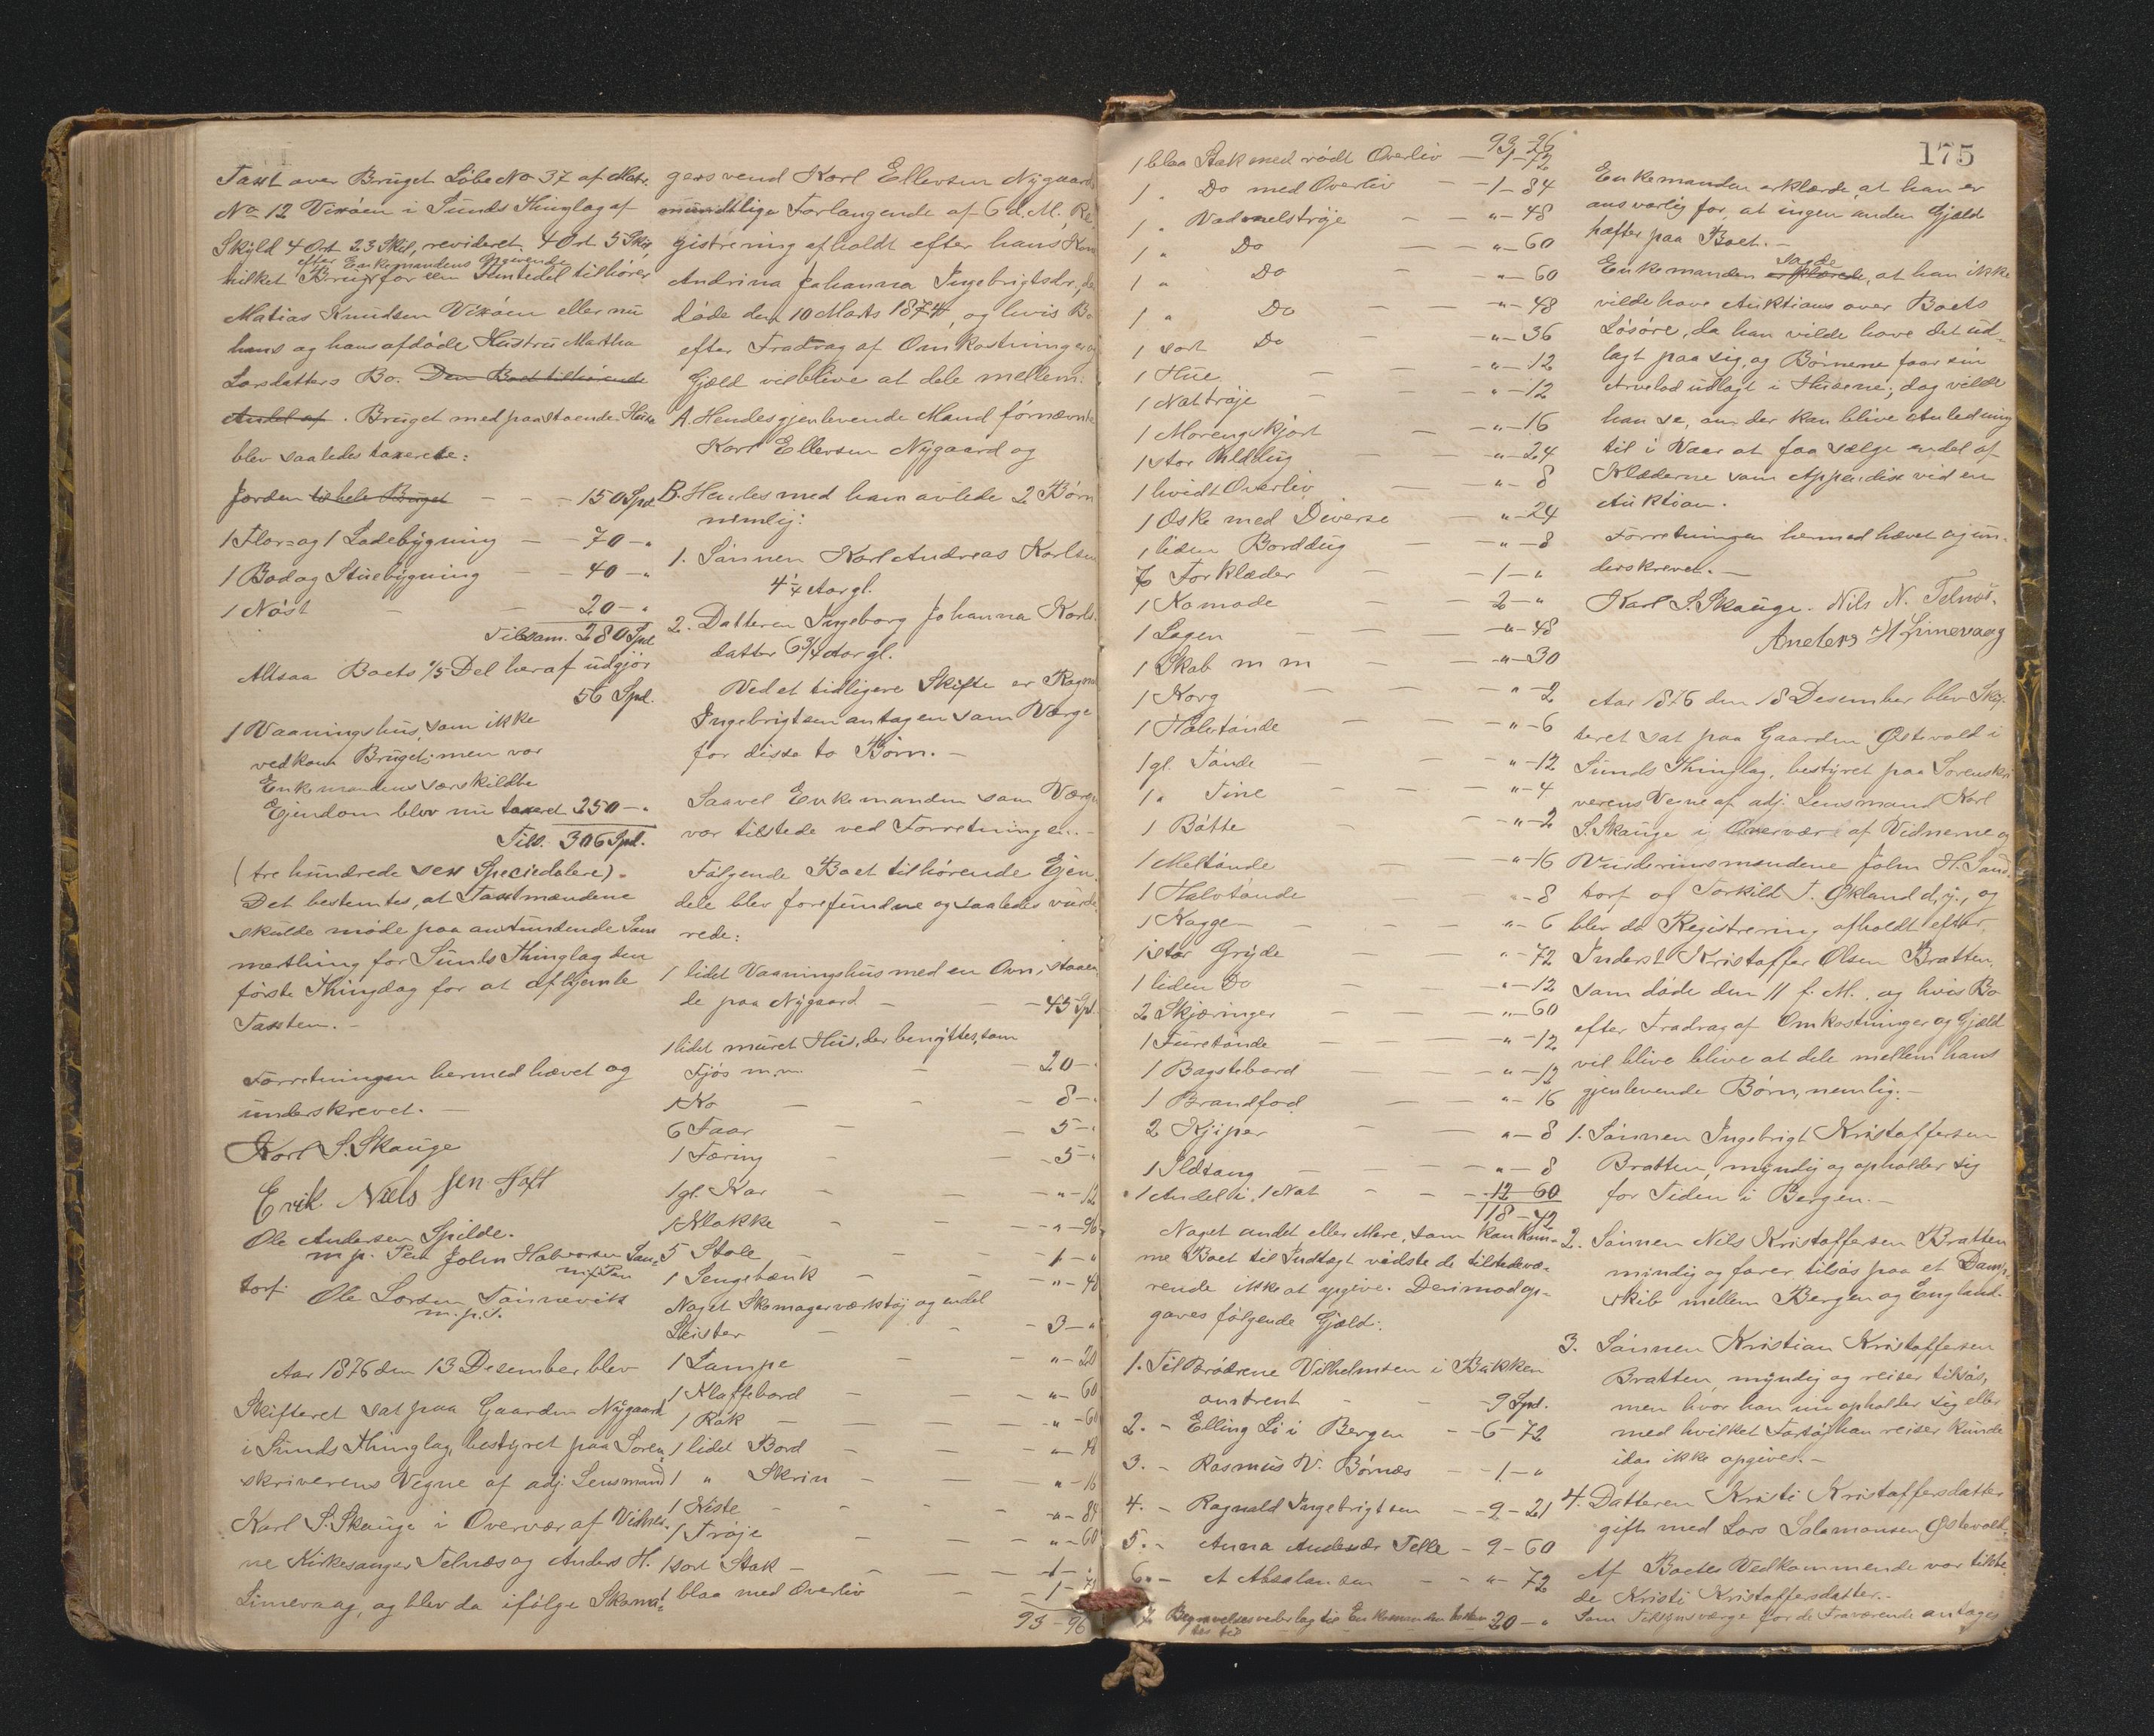 Taxt over Bruget Løbe No 37 af Matr.
No 12 Vixøen i Sunds Thinglag af
Skyld 4 Ort 23 Skil, revideret 4 Ort 5 Skil,
efter Enkemandens Opgivende
hvilket Brug for een Femtedel tilhører
Matias Knudsen Vixøen eller nu
hans og hans afdøde Hustru Martha
Larsdatters Bo. Den Boet tilhørende
Andel af. Bruget med paastaaende Huse
blev saaledes taxerede:
Jorden til hele Bruget - - 150 Spd
1 Flor- og 1 Ladebygning - - 70 - "
1 Bod og Stuebygning - - 40 - "
1 Nøst - - 20 - "
Tilsam. 280 Spd
Altsaa Boets 1/5 Del heraf udgjør
56 Spd.
1 Vaaningshus, som ikke
vedkom Bruget, men var
Enkemandens særskildte
Ejendom blev nu taxeret 250 - "
Tils. 306 Spd.
(tre hundrede sex Speciedalere).
Det bestemtes, at Taxtmændene
skulde møde paa anstundende Som
merthing for Sunds Thinglag den
første Thingdag for at afhjemle
Taxten. -
Forretningen hermed hævet og
underskrevet. -
Karl S. Skauge
Erik Niels sen Toft
Ole Andersen Spilde.
m. p. Pen John Halvorsen San=
torf m. p. Pen
Ole Larsen Tönnevik
m. p. P.
Aar 1876 den 13 Desember blev
Skifteret sat paa Gaarden Nygaard
i Sunds Thinglag, bestyret paa Soren
skriverens Vegne af adj. Lensmand
Karl S. Skauge i Overvær af Vidner
ne Kirkesanger Telnæs og Anders H.
Limevaag, og blev da ifølge Skoma=
gersvend Karl Ellevsen Nygaards
mundtlige Forlangende af 6 d. M. Re
gistrering afholdt efter hans Kone
Andrina Johanna Ingebrigtsdr., der
døde den 10 Marts 1874, og hvis Bo
efter Fradrag af Omkostninger og
Gjæld vil blive at dele mellem:
A. Hendes gjenlevende Mand førnævnte
Karl Ellevsen Nygaard og
B. Hendes med ham avlede 2 Børn
nemlig:
1. Sønnen Karl Andreas Karlsen
4 1/4 Aar gl.
2. Datteren Ingeborg Johanna Karls
datter 6 3/4 Aar gl.
Ved et tidligere Skifte er Ragna
Ingebrigtsen antagen som Værge
for disse to Børn. -
Saavel Enkemanden som Værgen
var tilstede ved Forretningen. -
Følgende Boet tilhørende Ejen
dele blev forefundne og saaledes vurde
rede:
1 lidet Vaaningshus med en Ovn, staaen
de paa Nygaard - - 45 Spd.
1 lidet muret Hus, der benyttes som
Fjøs m.m. - - 20 - "
1 Ko - - 8 - "
6 Faar - - 5 - "
1 Færing - - 5 - "
1 gl. Kar - - " - 12
1 Klokke - - " - 96
5 Stole - - 1 - "
1 Sengebænk - - " - 48
Noget Skomagerværktøj og endel
Leister - - 3 - "
1 Lampe - - " - 20
1 Klaffebord - - " - 60
1 Rok - - " - 60
1 lidet Bord - - " - 18
1 " Skrin - - " - 16
1 Kiste - - " - 84
1 Trøje - - " - 60
1 sort Stak - - 1 - "
1 blaa med Overliv - - 1 - 72
93 - 96
175
93 - 26
1 blaa Stak med rødt Overliv - " - 72
1 " Do med Overliv - - 1 - 84
1 " Vadmelstrøje - - " - 48
1 " Do - - " - 60
1 " Do - - " - 60
1 " Do - - " - 48
1 sort Do - - " - 36
1 Hue - - " - 12
1 Nattrøje - - " - 12
1 Morengskjørt - - " - 16
1 stor Ulddug - - " - 24
1 hvidt Overliv - - " - 8
1 Æske med Diverse - - " - 24
1 liden Borddug - - " - 8
7 Forklæder - - 1 - "
1 Komode - - 2 - "
1 Lagen - - " - 48
1 Skab m m - - " - 30
1 Korg - - " - 2
1 Halvtønde - - " - 6
1 gl. Tønde - - " - 12
1 " Tine - - " - 4
1 Bøtte - - " - 2
1 Meltønde - - " - 16
1 Halvtønde - - " - 8
1 Kagge - - " - 6
1 stor Gryde - - " - 72
1 liden Do - - " - 12
2 Skjæringer - - " - 60
1 Furetønde - - " - 12
1 Bagstebord - - " - 12
1 Brandfod - - " - 16
2 Kjiper - - " - 8
1 Ildtang - - " - 8
1 Andel i 1 Not - - 12 - 60
118 - 42
Noget andet eller Mere, som kan kom=
me Boet til Indtægt vidste de tilstedevæ=
rende ikke at opgive. Derimod op=
gaves følgende Gjæld:
1. Til Brødrene Vilhelmsen i Bukken
omtrent - - 9 Spd.
2. - Elling Li i Bergen - - 6 - 72
3. - Rasmus V. Børnæs - - 1 - "
4. - Ragnald Ingebrigtsen - - 9 - 21
5. - Anna Andersdr Telle - 9 - 60
6. - A Absalonsen - - " - 72
7. Begravelsesvederlag til Enkemanden 20 - "
Enkemanden erklærede, at han er
ansvarlig for, at ingen anden Gjæld
hæfter paa Boet. -
sagde
Enkemanden erklærede, at han ikke
vilde have Auktions over Boets
Løsøre, da han vilde have det ud=
lagt paa sig, og Børnene faar sin
Arvelod udlagt i Husene; dog vilde
han se, om der kan blive Anledning
til i Vaar at faa sælge endel af
Klæderne som Appendix ved en
Auktion.
Forretningen hermed hævet og un=
derskrevet. -
Karl S. Skauge. Nils N. Telnæs.
Anders H Limevaag
Aar 1876 den 18 Desember blev Skif=
teret sat paa Gaarden Østevold i
Sunds Thinglag, bestyret paa Sorenskri
verens Vegne af adj. Lensmand Karl
S. Skauge i Overvær af Vidnerne og
Vurderinsmændene John H. Sand=
torf og Torkild T. Økland d.y., og
blev da Registrering afholdt efter
Inderst Kristoffer Olsen Bratten,
som døde den 11 f. M. og hvis Bo
efter Fradrag af Omkostninger og Gjæld
vil blive blive at dele mellem hans
gjenlevende Børn, nemlig: -
1. Sønnen Ingebrigt Kristoffersen
Bratten, myndig og opholder sig
for Tiden i Bergen. -
2. Sønnen Nils Kristoffersen Bratten
mindig og farer tilsøs paa et Damp=
skib mellem Bergen og England.
3. Sønnen Kristian Kristoffersen
Bratten, myndig og reiser tilsøs,
men hvor han nu opholder sig eller
med hvilket Fartøj han reiser kunde
idag ikke opgives. -
4. Datteren Kristi Kristoffersdatter
gift med Lars Salamonsen Østevold.
Af Boets Vedkommende var tilste
de Kristi Kristoffersdatter. -
Som Tilsynsværge for de Fraværende antages